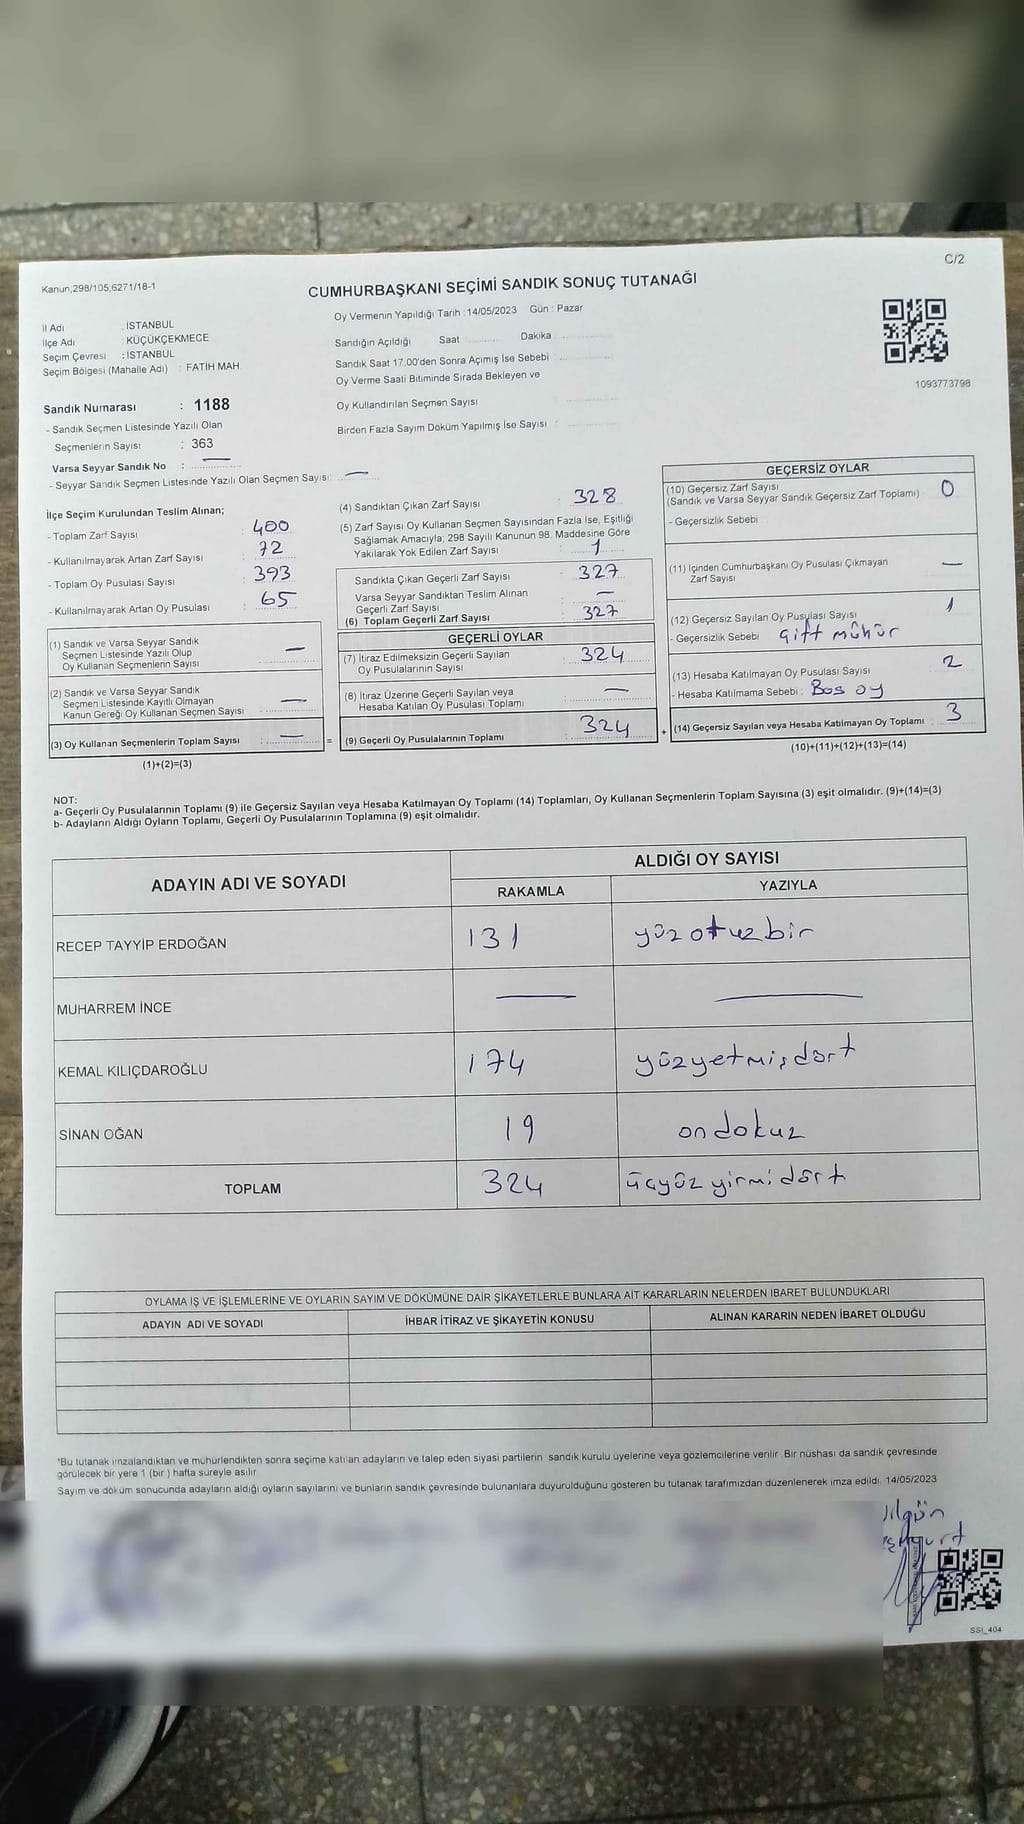 C/2
Kanun,298/105,6271/18-1
CUMHURBAŞKANI SEÇİMİ SANDIK SONUÇ TUTANAĞI
Oy Vermenin Yapıldığı Tarih :14/05/2023 Gün : Pazar
İl Adı : İSTANBUL
İlçe Adı : KÜÇÜKÇEKMECE
Seçim Çevresi : İSTANBUL
Seçim Bölgesi (Mahalle Adı) : FATİH MAH
Sandığın Açıldığı Saat Dakika
Sandık Saat 17:00'den Sonra Açımış İse Sebebi
Oy Verme Saati Bitiminde Sırada Bekleyen ve
Oy Kullandırılan Seçmen Sayısı
Birden Fazla Sayım Döküm Yapılmış İse Sayısı :
1093773798
Sandık Numarası : 1188
- Sandık Seçmen Listesinde Yazılı Olan
Seçmenlerin Sayısı : 363
Varsa Seyyar Sandık No : —
- Seyyar Sandık Seçmen Listesinde Yazılı Olan Seçmen Sayısı: —
İlçe Seçim Kurulundan Teslim Alınan;
- Toplam Zarf Sayısı : 400
- Kullanılmayarak Artan Zarf Sayısı : 72
- Toplam Oy Pusulası Sayısı : 393
- Kullanılmayarak Artan Oy Pusulası : 65
(1) Sandık ve Varsa Seyyar Sandık
Seçmen Listesinde Yazılı Olup
Oy Kullanan Seçmenlerin Sayısı : —
(2) Sandık ve Varsa Seyyar Sandık
Seçmen Listesinde Kayıtlı Olmayan
Kanun Gereği Oy Kullanan Seçmen Sayısı : —
(3) Oy Kullanan Seçmenlerin Toplam Sayısı : —
(1)+(2)=(3)
=
(4) Sandıktan Çıkan Zarf Sayısı : 328
(5) Zarf Sayısı Oy Kullanan Seçmen Sayısından Fazla İse, Eşitliği
Sağlamak Amacıyla; 298 Sayılı Kanunun 98. Maddesine Göre
Yakılarak Yok Edilen Zarf Sayısı : 1
Sandıkta Çıkan Geçerli Zarf Sayısı : 327
Varsa Seyyar Sandıktan Teslim Alınan
Geçerli Zarf Sayısı : —
(6) Toplam Geçerli Zarf Sayısı : 327
GEÇERLİ OYLAR
(7) İtiraz Edilmeksizin Geçerli Sayılan
Oy Pusulalarının Sayısı : 324
(8) İtiraz Üzerine Geçerli Sayılan veya
Hesaba Katılan Oy Pusulası Toplamı : —
(9) Geçerli Oy Pusulalarının Toplamı : 324
+
GEÇERSİZ OYLAR
(10) Geçersiz Zarf Sayısı
(Sandık ve Varsa Seyyar Sandık Geçersiz Zarf Toplamı) : 0
- Geçersizlik Sebebi
(11) İçinden Cumhurbaşkanı Oy Pusulası Çıkmayan
Zarf Sayısı —
(12) Geçersiz Sayılan Oy Pusulası Sayısı 1
- Geçersizlik Sebebi Çift mühür
(13) Hesaba Katılmayan Oy Pusulası Sayısı 2
- Hesaba Katılmama Sebebi : Boş oy
(14) Geçersiz Sayılan veya Hesaba Katılmayan Oy Toplamı 3
(10)+(11)+(12)+(13)=(14)
NOT:
a- Geçerli Oy Pusulalarının Toplamı (9) ile Geçersiz Sayılan veya Hesaba Katılmayan Oy Toplamı (14) Toplamları, Oy Kullanan Seçmenlerin Toplam Sayısına (3) eşit olmalıdır. (9)+(14)=(3)
b- Adayların Aldığı Oyların Toplamı, Geçerli Oy Pusulalarının Toplamına (9) eşit olmalıdır.
ADAYIN ADI VE SOYADI ALDIĞI OY SAYISI
RAKAMLA YAZIYLA
RECEP TAYYİP ERDOĞAN 131 yüzotuzbir
MUHARREM İNCE — —
KEMAL KILIÇDAROĞLU 174 yüzyetmişdört
SİNAN OĞAN 19 ondokuz
TOPLAM 324 üçyüzyirmidört
OYLAMA İŞ VE İŞLEMLERİNE VE OYLARIN SAYIM VE DÖKÜMÜNE DAİR ŞİKAYETLERLE BUNLARA AİT KARARLARIN NELERDEN İBARET BULUNDUKLARI
ADAYIN ADI VE SOYADI İHBAR İTİRAZ VE ŞİKAYETİN KONUSU ALINAN KARARIN NEDEN İBARET OLDUĞU
*Bu tutanak imzalandıktan ve mühürlendikten sonra seçime katılan adayların ve talep eden siyasi partilerin sandık kurulu üyelerine veya gözlemcilerine verilir. Bir nüshası da sandık çevresinde
görülecek bir yere 1 (bir ) hafta süreyle asılır
Sayım ve döküm sonucunda adayların aldığı oyların sayılarını ve bunların sandık çevresinde bulunanlara duyurulduğunu gösteren bu tutanak tarafımızdan düzenlenerek imza edildi. 14/05/2023
SSİ_404